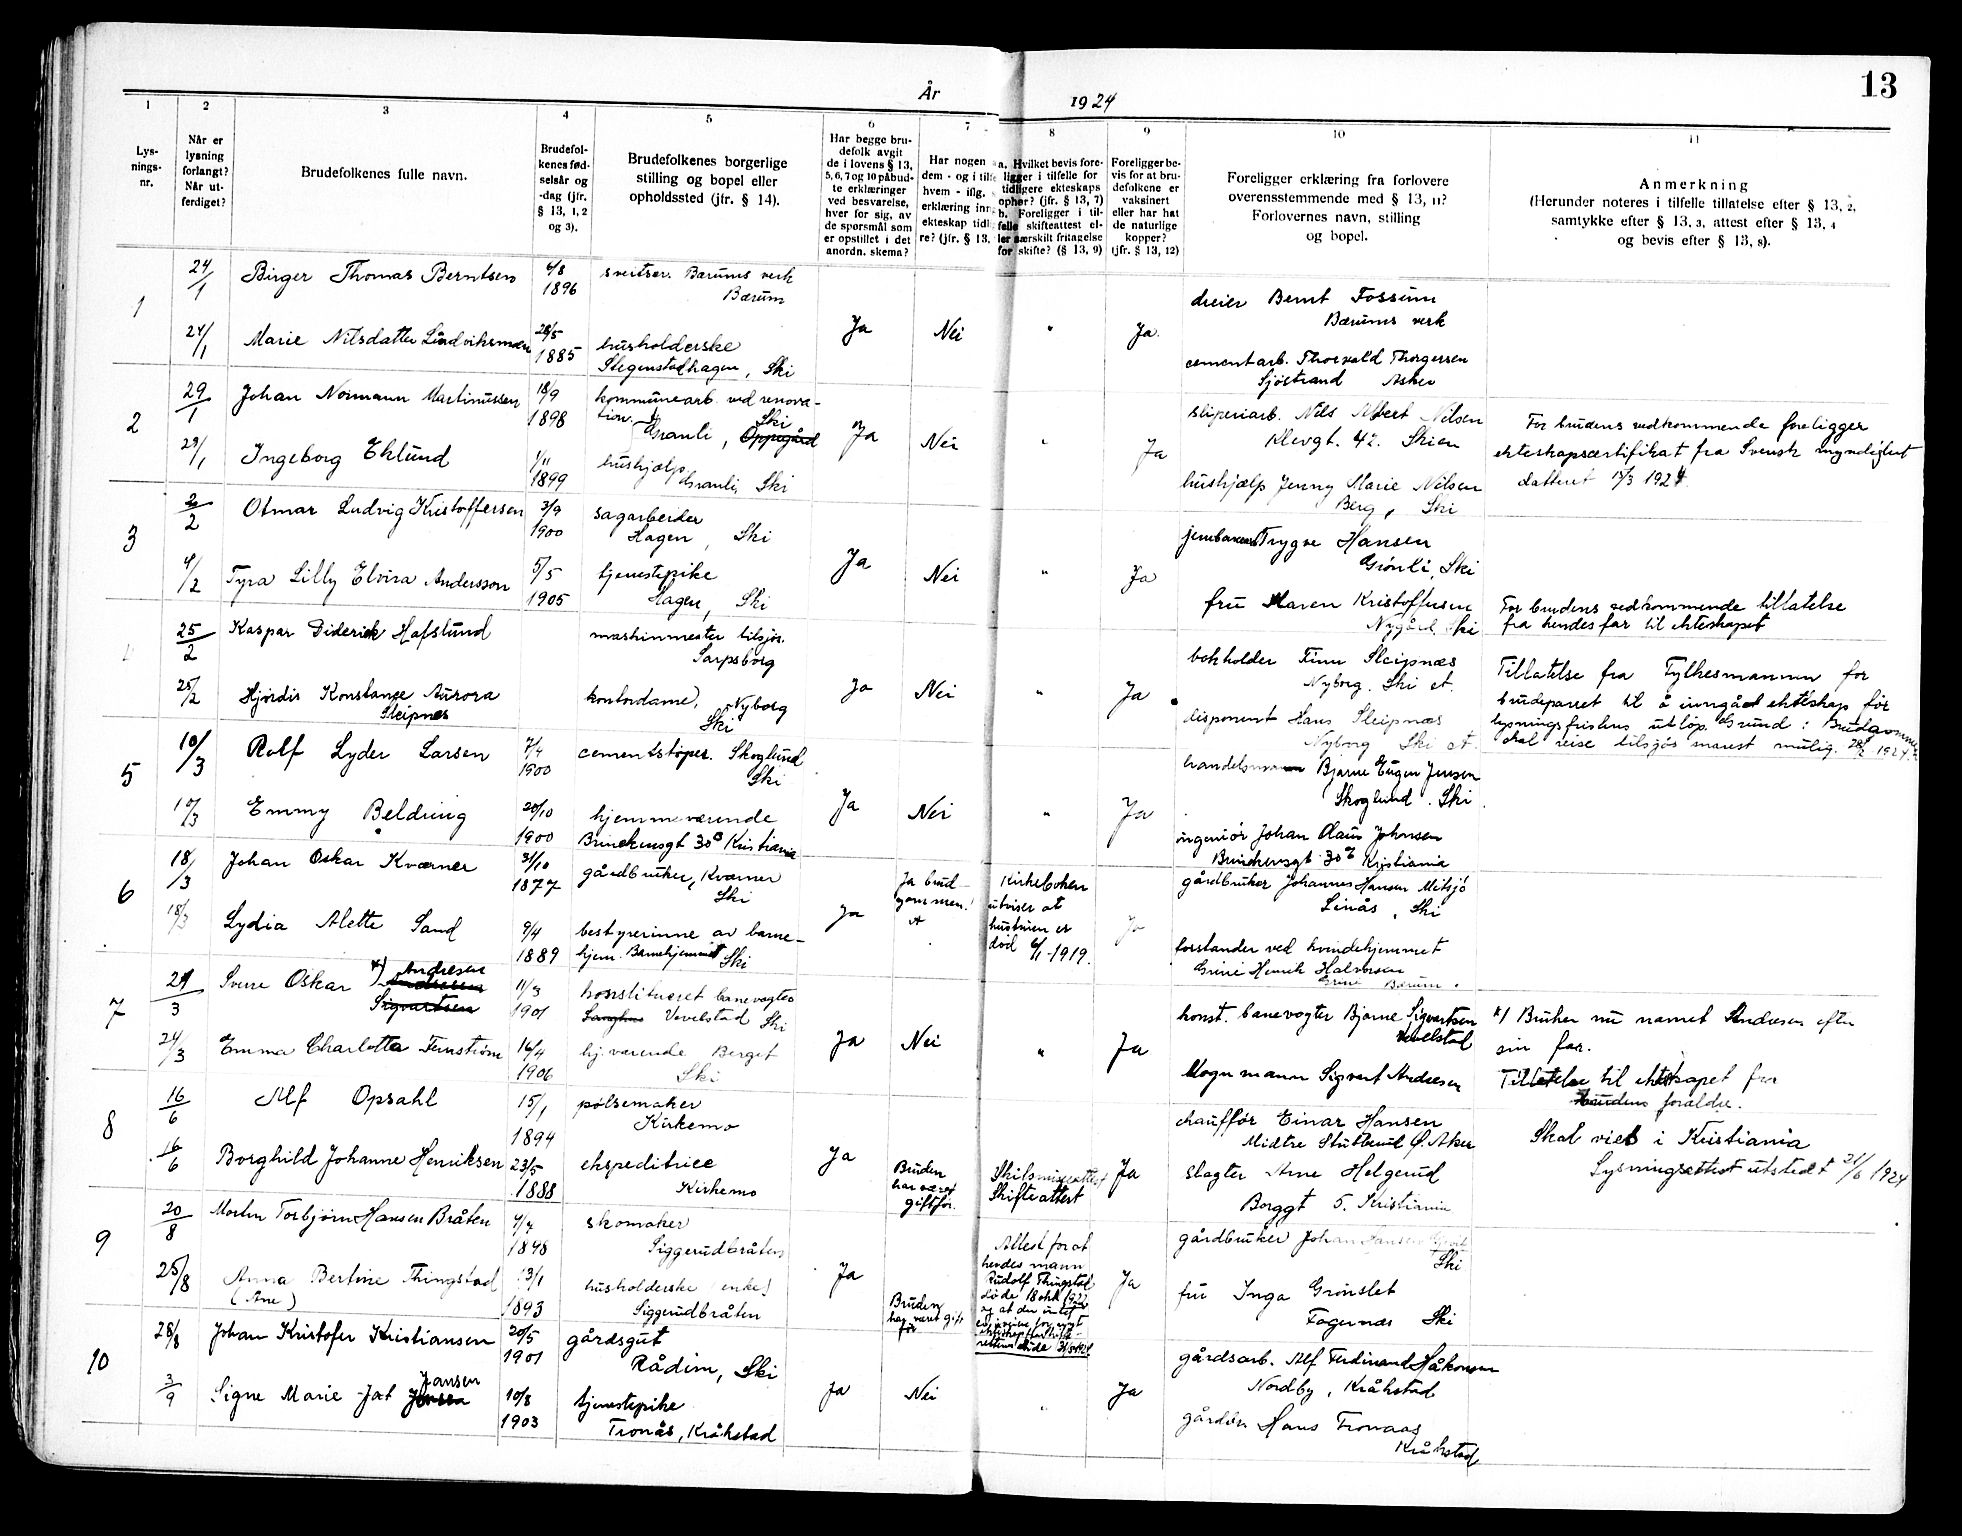 13
År 1924
1 2 3 4 5 6 7 8 9 10 11
Lys-
nings-
nr.
Når er
lysning
forlangt?
Når ut-
ferdiget?
Brudefolkenes fulle navn.
Brudefol-
kenes fød-
selsår og
-dag (jfr.
§ 13, 1, 2
og 3).
Brudefolkenes borgerlige
stilling og bopel eller
opholdssted (jfr. § 14).
Har begge bru-
defolk avgit
de i lovens § 13,
5, 6, 7 og 10 påbud-
te erklæringer
ved besvarelse,
hver for sig, av
de spørsmål som
er opstillet i det
anordn. skema?
Har nogen a
dem - og i tilfe
hvem - iflg.
erklæring inn
ekteskap tidli
re? (jfr. § 13,
a. Hvilket bevis fore-
ligger i tilfelle for
tidligere ekteskaps
ophør? (jfr. § 13, 7)
b. Foreligger i til-
felle skifteattest el-
ler særskilt fritagelse
for skifte? (§ 13, 9)
Foreligger be-
vis for at bru-
defolkene er
vaksinert
eller har hat
de naturlige
kopper?
(jfr. § 13, 12)
Foreligger erklæring fra forlovere
overensstemmende med § 13, 11?
Forlovernes navn, stilling
og bopel.
Anmerkning
(Herunder noteres i tilfelle tillatelse efter § 13, 2,
samtykke efter § 13, 3, attest efter § 13, 4
og bevis efter § 13, 8).
1
24/1 Birger Thomas Berntsen 6/8 1896 sveitser. Bærums verk
Bærum
24/1 Marie Nilsdatter 28/5 1885 husholderske
Stegenstadhagen, Ski
Ja Nei " Ja.
dreier Bernt Fossum
Bærums verk
cementarb. Thorvald Thorgersen
Sjøstrand Asker
2
29/1 Johan Normann Martinussen 18/9 1898 kommunearb. ved renova-
tion. Granli, Oppegård Ski
29/1 Ingeborg Eklund 1/11 1899 hushjælp
Granli, Ski
Ja Nei " Ja
sliperiarb. Nils Albert Nilsen
Klevgt. 42. Skien
hushjælp Jenny Marie Nilsen
Berg, Ski
For brudens vedkommende foreligger
ekteskapscertifikat fra Svensk myndighet
datteret 1924
3
2/2 Otmar Ludvig Kristoffersen 3/9 1900 sagarbeider
Hagen, Ski
4/2 Tyra Lilly Elvira Andersson 5/5 1905 tjenestepike
Hagen, Ski
Ja Nei " Ja
Trygve Hansen
Grønli, Ski
fru Maren Kristoffersen
Nygård, Ski
For brudens vedkommende tillatelse
fra hendes far til ekteskapet
4
25/2 Kaspar Diderick Hafslund maskinmester tilsjøs.
Sarpsborg
25/2 Hjørdis Konstanse Aurora
Sleipnes
kontordame, Nyborg
Ski
Ja Nei " Ja
bokholder Finn Sleipnæs
Nyborg. Ski st.
disponent Hans Sleipnæs
Nyborg Ski st.
Tillatelse fra Fylkesmannen for
brudeparret til å inngå ekteskap før
lysningsfristens utløp. Grund: Brudgommen
skal reise tilsjøs snarest mulig. 28/2 1924.
5
10/3 Rolf Lyder Larsen 7/4 1900 cementstøper. Skoglund
Ski
10/3 Emmy Beldring 20/10 1900 hjemmeværende
Brinckensgt 30B Kristiania
Ja Nei " Ja
handelsmann Bjarne Eugen Jensen
Skoglund. Ski.
ingeniør Johan Olaus Johnsen
Brinckensgt 30B Kristiania
6
18/3 Johan Oskar Kværner 31/10 1877 gårdbruker, Kværner
Ski
18/3 Lydia Alette Sand 9/4 1889 bestyrerinne av barne-
hjem. Barnehjemmet Ski
Ja
Ja brud-
gommen.
Kirkeboken
utviser at
hustruen er
død 6/1-1919.
Ja
gårdbruker Johannes Hansen Midsjø
Linås, Ski
forstander ved kvindehjemmet
Grini Henrik Halvorsen
Grini Bærum.
7
24/3 Sverre Oskar *) Andresen
Sigvartsen
11/3 1901 konstitueret banevogter
Langhus Vevelstad Ski
24/3 Emma Charlotta Fernstrøm 16/4 1906 hj. værende Berget
Ski
Ja Nei " Ja
konst. banevogter Bjarne Sigvartsen
Vevelstad
Vognmann Sigvart Andresen
*) Bruker nu navnet Andresen efter
sin far.
Tillatelse til ekteskapet fra
brudens forældre.
8
16/6 Alf Opsahl 15/1 1894 pølsemaker
Kirkemo
16/6 Borghild Johanne Henriksen 23/5 1888 ekspeditrice
Kirkemo
Ja
Bruden
har været
gift før.
Skilsmisseattest
Skifteattest
Ja
chaufför Einar Hansen
Midtre Stubberud Ø. Aker
slagter Arne Helgerud
Borggt 5. Kristiania
Skal vies i Kristiania
Lysningsattest utstedt 21/6 1924
9
20/8 Morten Torbjørn Hansen Bråten 1898 skomaker
Siggerudbråten
25/8 Anna Bertine Thingstad
(Ane)
13/1 1893 husholderske (enke)
Siggerudbråten
Ja
Bruden
har været gift
før
Attest for at
hendes mann
Rudolf Thingstad
døde 18 okt 1922
Ja
gårdbruker Johan Hansen
Ski
fru Inga Grønslet
Fagernæs Ski
10
28/8 Johan Kristofer Kristiansen 20/5 1901 gårdsgut
Rådim, Ski
3/9 Signe Marie Jansen 10/8 1903 tjenestepike
Tronås, Kråkstad
Ja Nei " Ja
gårdsarb. Alf Ferdinand Håkonsen
Nordby, Kråkstad
Hans Tronaas
Kråkstad